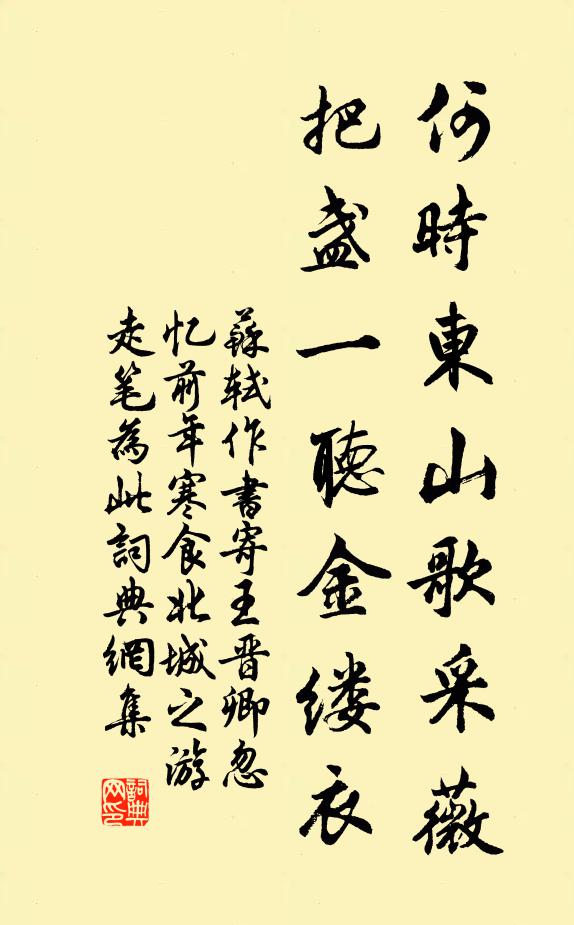 何時東山歌采薇
把盞一聽金缕衣
蘇軾作書寄王晋卿忽
忆前年寒食北城之游
走笔為此詞典網集
詞典网印